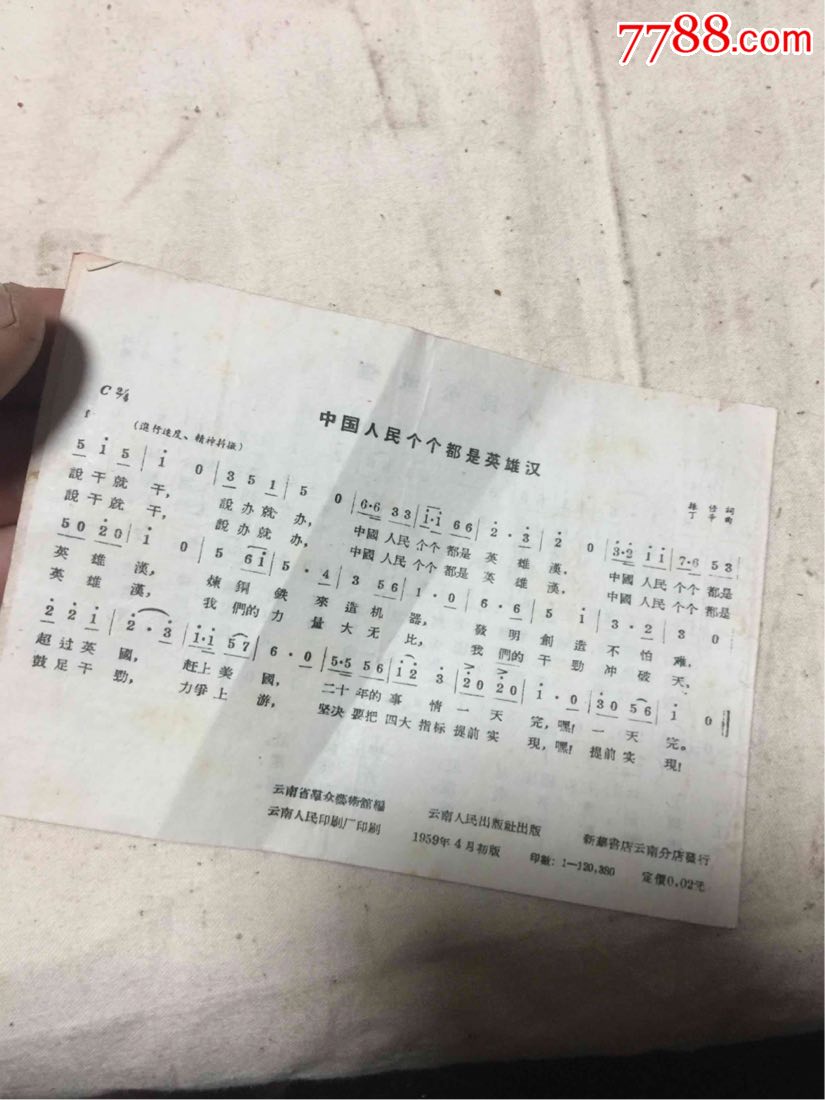 7788.com
中国人民个个都是英雄汉
C 2/4
(進行速度、精神抖擞)
詞
曲
5 i 5 | i 0 | 3 5 1 | 5 0 | 6·6 3 3 | i·i 6 6 | 2̇ · 3̇ | 2̇ 0 | 3̇·2̇ i i | 7·6 5 3 |
說干就干, 說办就办, 中國人民个个都是英雄漢, 中國人民个个都是
說干就干, 說办就办, 中國人民个个都是英雄漢, 中國人民个个都是
5 0 2̇ 0 | i 0 | 5 6 i | 5 · 4 | 3 5 6 | 1 · 0 | 6 · 6 | 5 i | 3 · 2 | 3 0 |
英雄漢, 煉鋼鉄來造机器, 發明創造不怕难,
英雄漢, 我們的力量大无比, 我們的干勁冲破天,
2̇ 2̇ i | 2̇ · 3̇ | i·i 5 7 | 6 · 0 | 5·5 5 6 | i 2̇ · 3̇ | 2̇ 0 2̇ 0 | i · 0 | 3̇ 0 5 6 | i 0 ‖
超过英國, 赶上美國, 二十年的事情一天完,嘿!一天完。
鼓足干勁, 力爭上游, 坚决要把四大指标提前实現,嘿!提前实現!
云南省羣众藝術館編 云南人民出版社出版 新華書店云南分店發行
云南人民印刷厂印刷 1959年4月初版 印數:1—120,380 定價0.02元